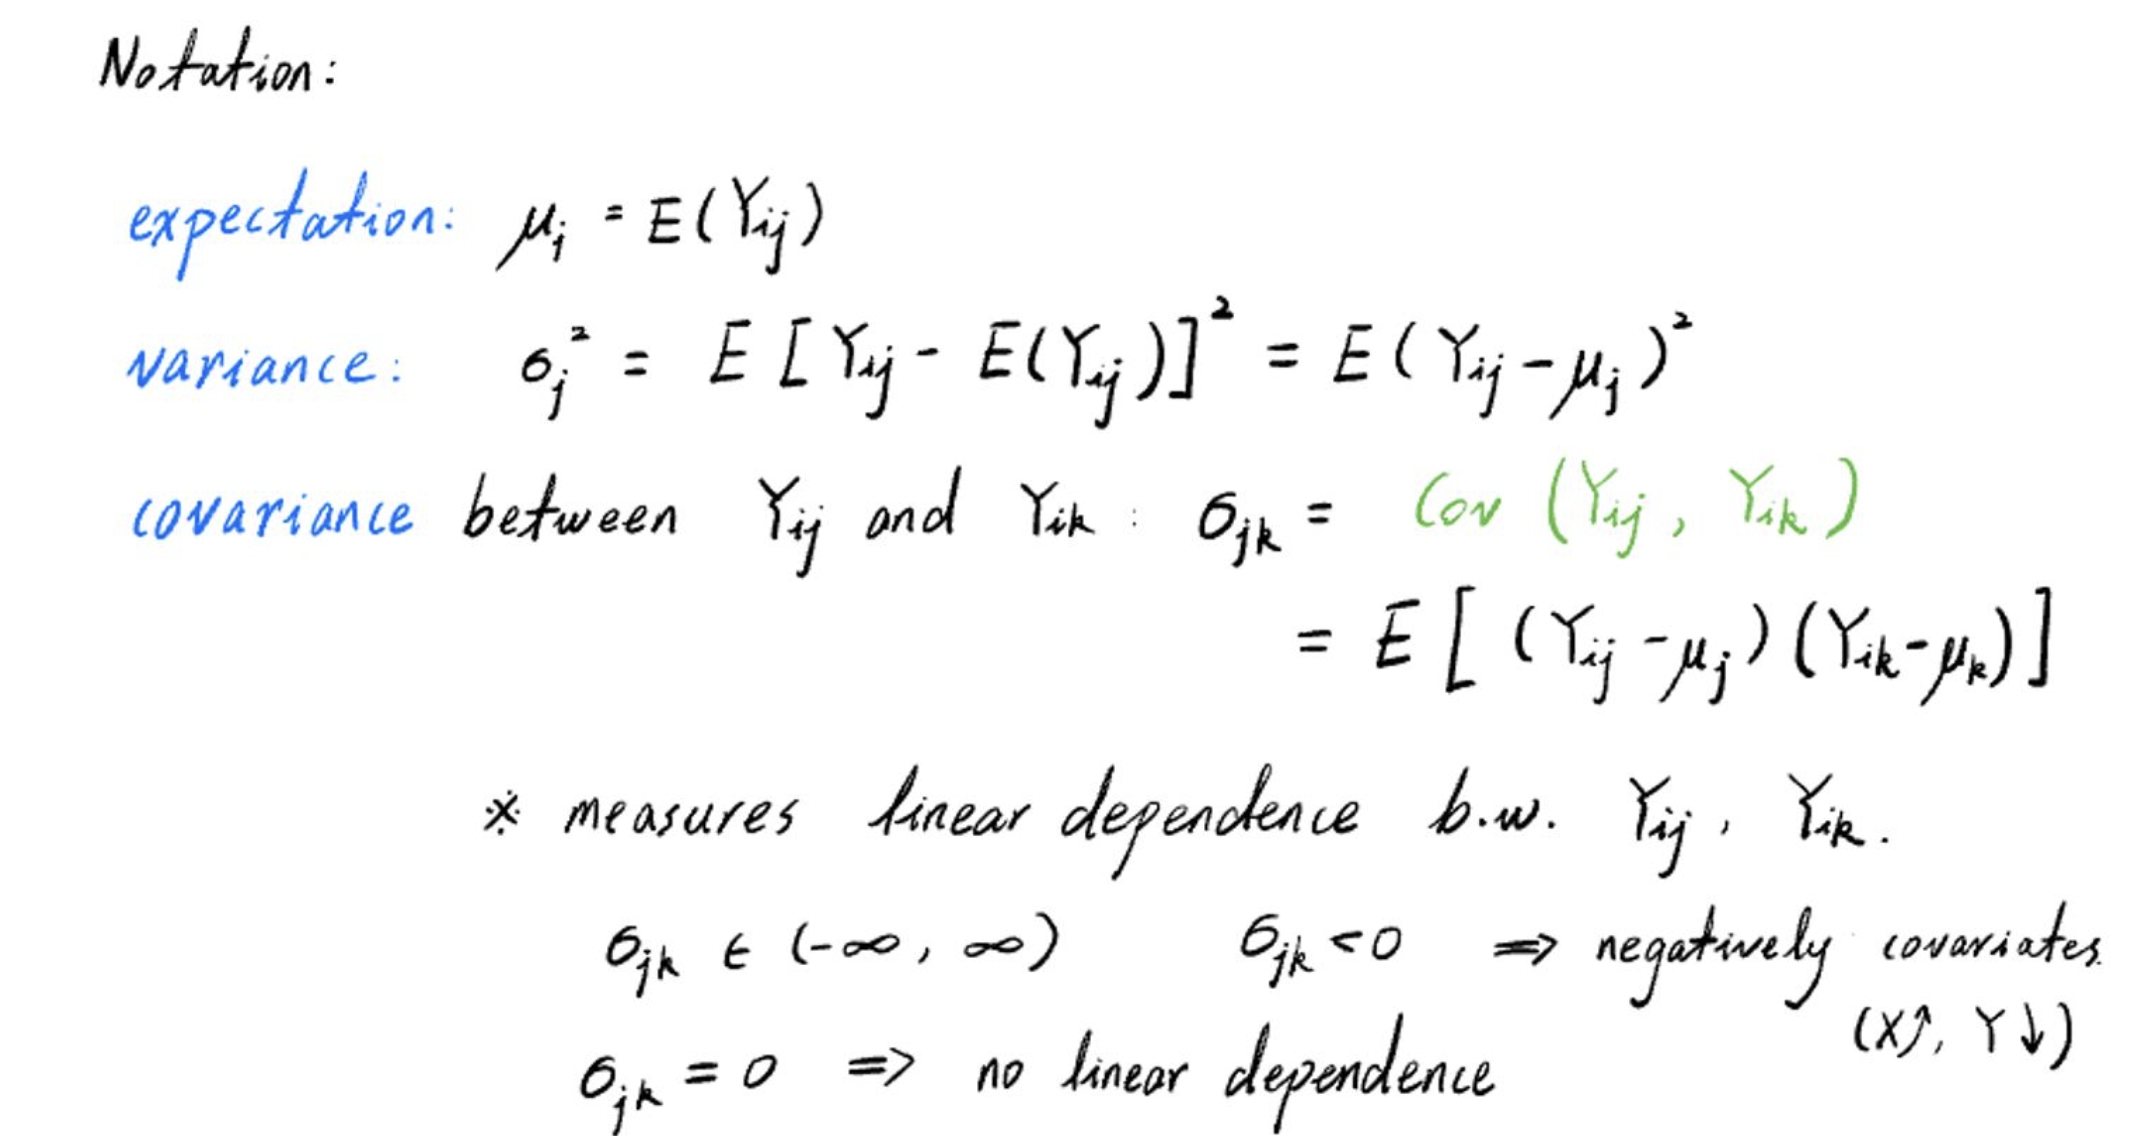 Notation:
expectation: μⱼ = E(Yᵢⱼ)
variance: σⱼ² = E[Yᵢⱼ - E(Yᵢⱼ)]² = E(Yᵢⱼ - μⱼ)²
covariance between Yᵢⱼ and Yᵢₖ : σⱼₖ = Cov (Yᵢⱼ, Yᵢₖ)
= E[(Yᵢⱼ - μⱼ)(Yᵢₖ - μₖ)]
※ measures linear dependence b.w. Yᵢⱼ, Yᵢₖ.
σⱼₖ ∈ (-∞, ∞) σⱼₖ < 0 ⇒ negatively covariates.
(X↑, Y↓)
σⱼₖ = 0 ⇒ no linear dependence